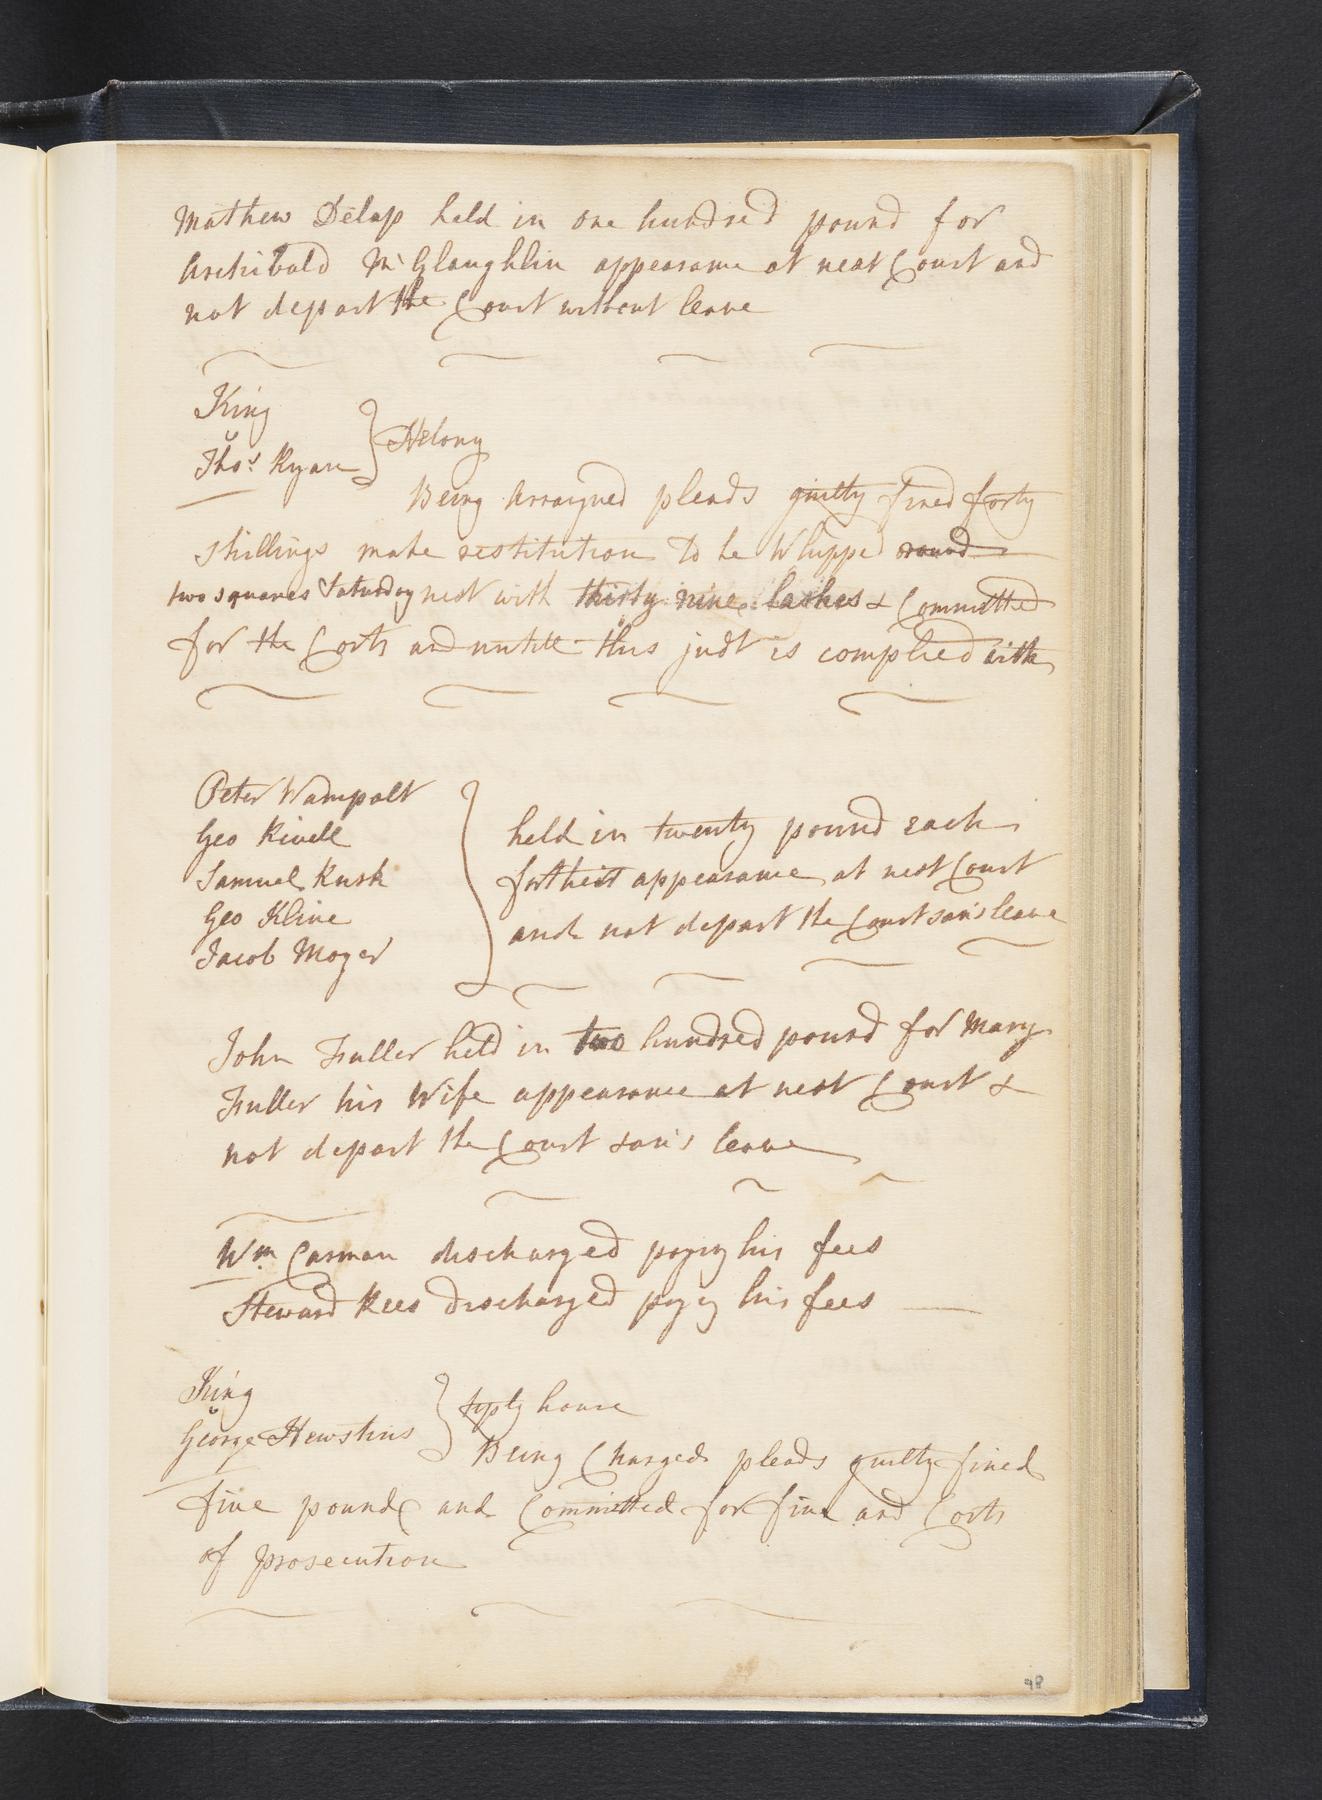 Mathew Delap held in one hundred pound for
Archibald Mc Glaughlin appearame at neat Court and
not depart the Court without leave
King
v
Thos. Ryan } Felony
Being Arraigned pleads guilty fined forty
shillings make restitution to be Whipped round
two squares Saturday next with thirty nine lashes & Committed
for the Costs and untill this judt is complied with
Peter Wampolt
Geo Rivell
Samuel Kusk
Geo Kline
Jacob Moyer
held in twenty pound each
for their appearame at next Court
and not depart the Court sans leave
John Fuller held in two hundred pound for Mary
Fuller his Wife appearance at next Court &
not depart the Court sans leave
Wm. Carman discharged payg his fees
Steward Rees discharged payg his fees
King
v
George Hewstins } tiply house
Being Charged pleads guilty fined
five pound and Committed for fine and Costs
of prosecution
98